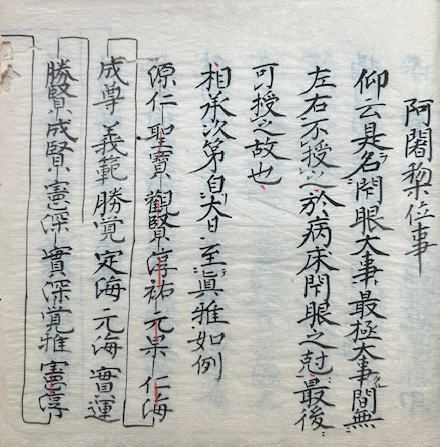 阿闍梨位事
仰云是名閇眼大事最極大事間無
左右不授之於病床閇眼之尅最後
可授之故也
相承次第自大日至眞雅如例
源仁聖寳觀賢淳祐元杲仁海
成尊義範勝覚定海元海實運
勝賢成賢憲深實深覚雅憲淳